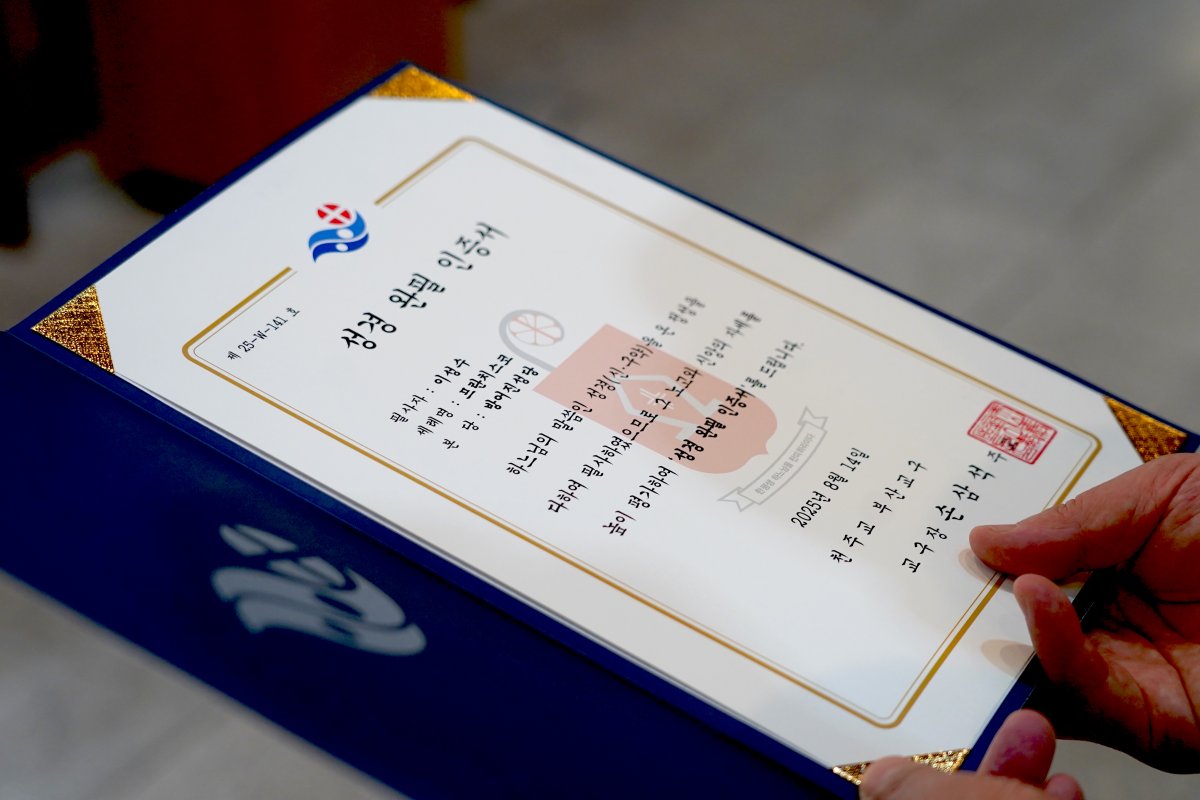 제 25-W-141 호
성경 완필 인증서
필사자 : 이성수
세례명 : 프란치스코
본 당 : 방어진성당
하느님의 말씀인 성경(신·구약)을 온 정성을
다하여 필사하였으므로 그 노고와 신앙의 자세를
높이 평가하여 '성경 완필 인증서'를 드립니다.
한평생 하느님을 찬미하리이다
2025년 8월 14일
천주교 부산교구
교구장 손삼석 주